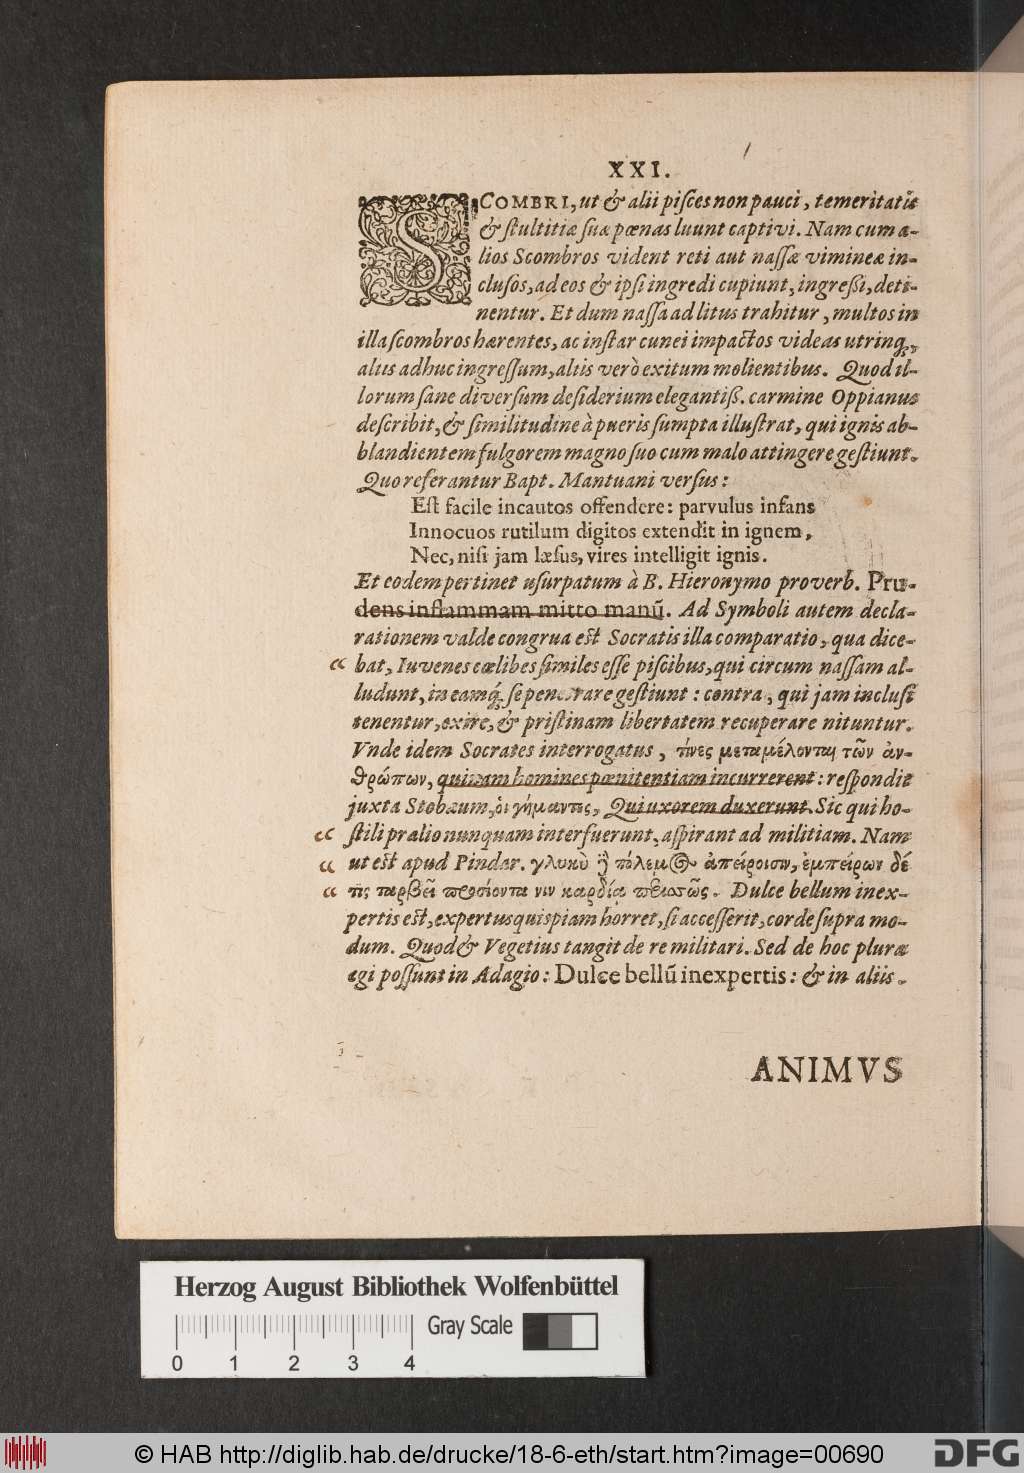 XXI.
SCOMBRI, ut & alii pisces non pauci, temeritatis
& stultitiæ suæ pœnas luunt captivi. Nam cum a-
lios Scombros vident reti aut nassæ vimineæ in-
clusos, ad eos & ipsi ingredi cupiunt, ingressi, deti-
nentur. Et dum nassa ad litus trahitur, multos in
illa scombros hærentes, ac instar cunei impactos videas utrinq,
aliis adhuc ingressum, aliis verò exitum molientibus. Quod il-
lorum sane diversum desiderium elegantiß. carmine Oppianus
describit, & similitudine à pueris sumpta illustrat, qui ignis ab-
blandientem fulgorem magno suo cum malo attingere gestiunt.
Quo referantur Bapt. Mantuani versus:
Est facile incautos offendere: parvulus infans
Innocuos rutilum digitos extendit in ignem,
Nec, nisi jam læsus, vires intelligit ignis.
Et eodem pertinet usurpatum à B. Hieronymo proverb. Pru-
dens in flammam mitto manũ. Ad Symboli autem decla-
rationem valde congrua est Socratis illa comparatio, qua dice-
bat, Iuvenes cœlibes similes esse piscibus, qui circum nassam al-
ludunt, in eamq́ se penetrare gestiunt: contra, qui jam inclusi
tenentur, exire, & pristinam libertatem recuperare nituntur.
Vnde idem Socrates interrogatus, τίνες μεταμέλονται τῶν ἀν-
θρώπων, quinam homines pœnitentiam incurrerent: respondit
juxta Stobæum, οἱ γήμαντες, Qui uxorem duxerunt. Sic qui ho-
stili prælio nunquam interfuerunt, aspirant ad militiam. Nam
ut est apud Pindar. γλυκὺ ἢ πόλεμος ἀπείροισιν, ἐμπείρων δέ
τις ταρβεῖ προσίοντα νιν καρδίᾳ περισσῶς. Dulce bellum inex-
pertis est, expertus quispiam horret, si accesserit, corde supra mo-
dum. Quod & Vegetius tangit de re militari. Sed de hoc plura
egi possunt in Adagio: Dulce bellũ inexpertis: & in aliis.
ANIMVS
Herzog August Bibliothek Wolfenbüttel
Gray Scale
0 1 2 3 4
© HAB http://diglib.hab.de/drucke/18-6-eth/start.htm?image=00690
DFG